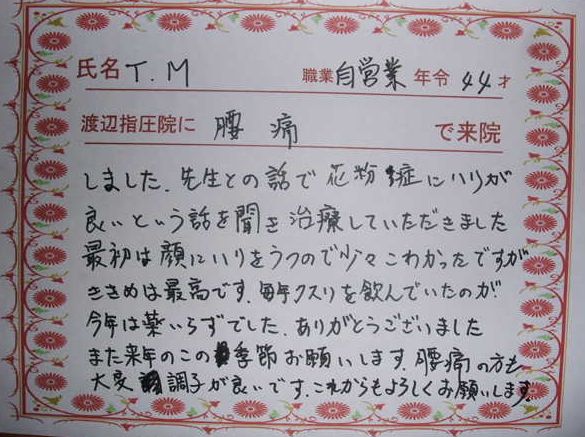 氏名 T.M 職業 自営業 年令 44才
渡辺指圧院に 腰痛 で来院
しました。先生との話で花粉症にハリが
良いという話を聞き治療していただきました
最初は顔にハリをうつので少々こわかったですが
ききめは最高です。毎年クスリを飲んでいたのが
今年は薬いらずでした。ありがとうございました
また来年のこの季節お願いします。腰痛の方も
大変調子が良いです。これからもよろしくお願いします